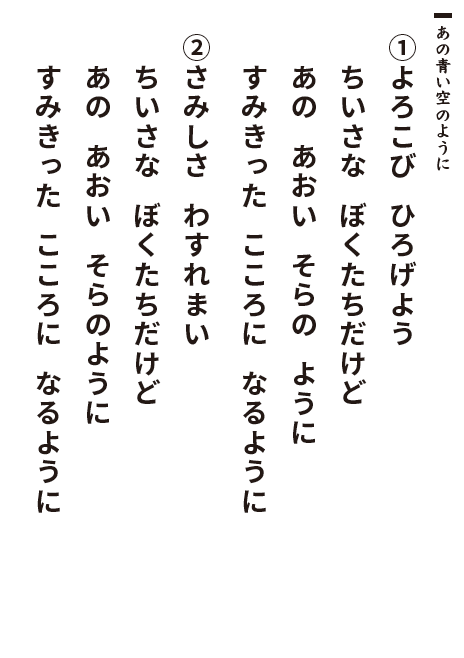 あの青い空のように
①よろこび　ひろげよう
ちいさな　ぼくたちだけど
あの　あおい　そらの　ように
すみきった　こころに　なるように
②さみしさ　わすれまい
ちいさな　ぼくたちだけど
あの　あおい　そらのように
すみきった　こころに　なるように